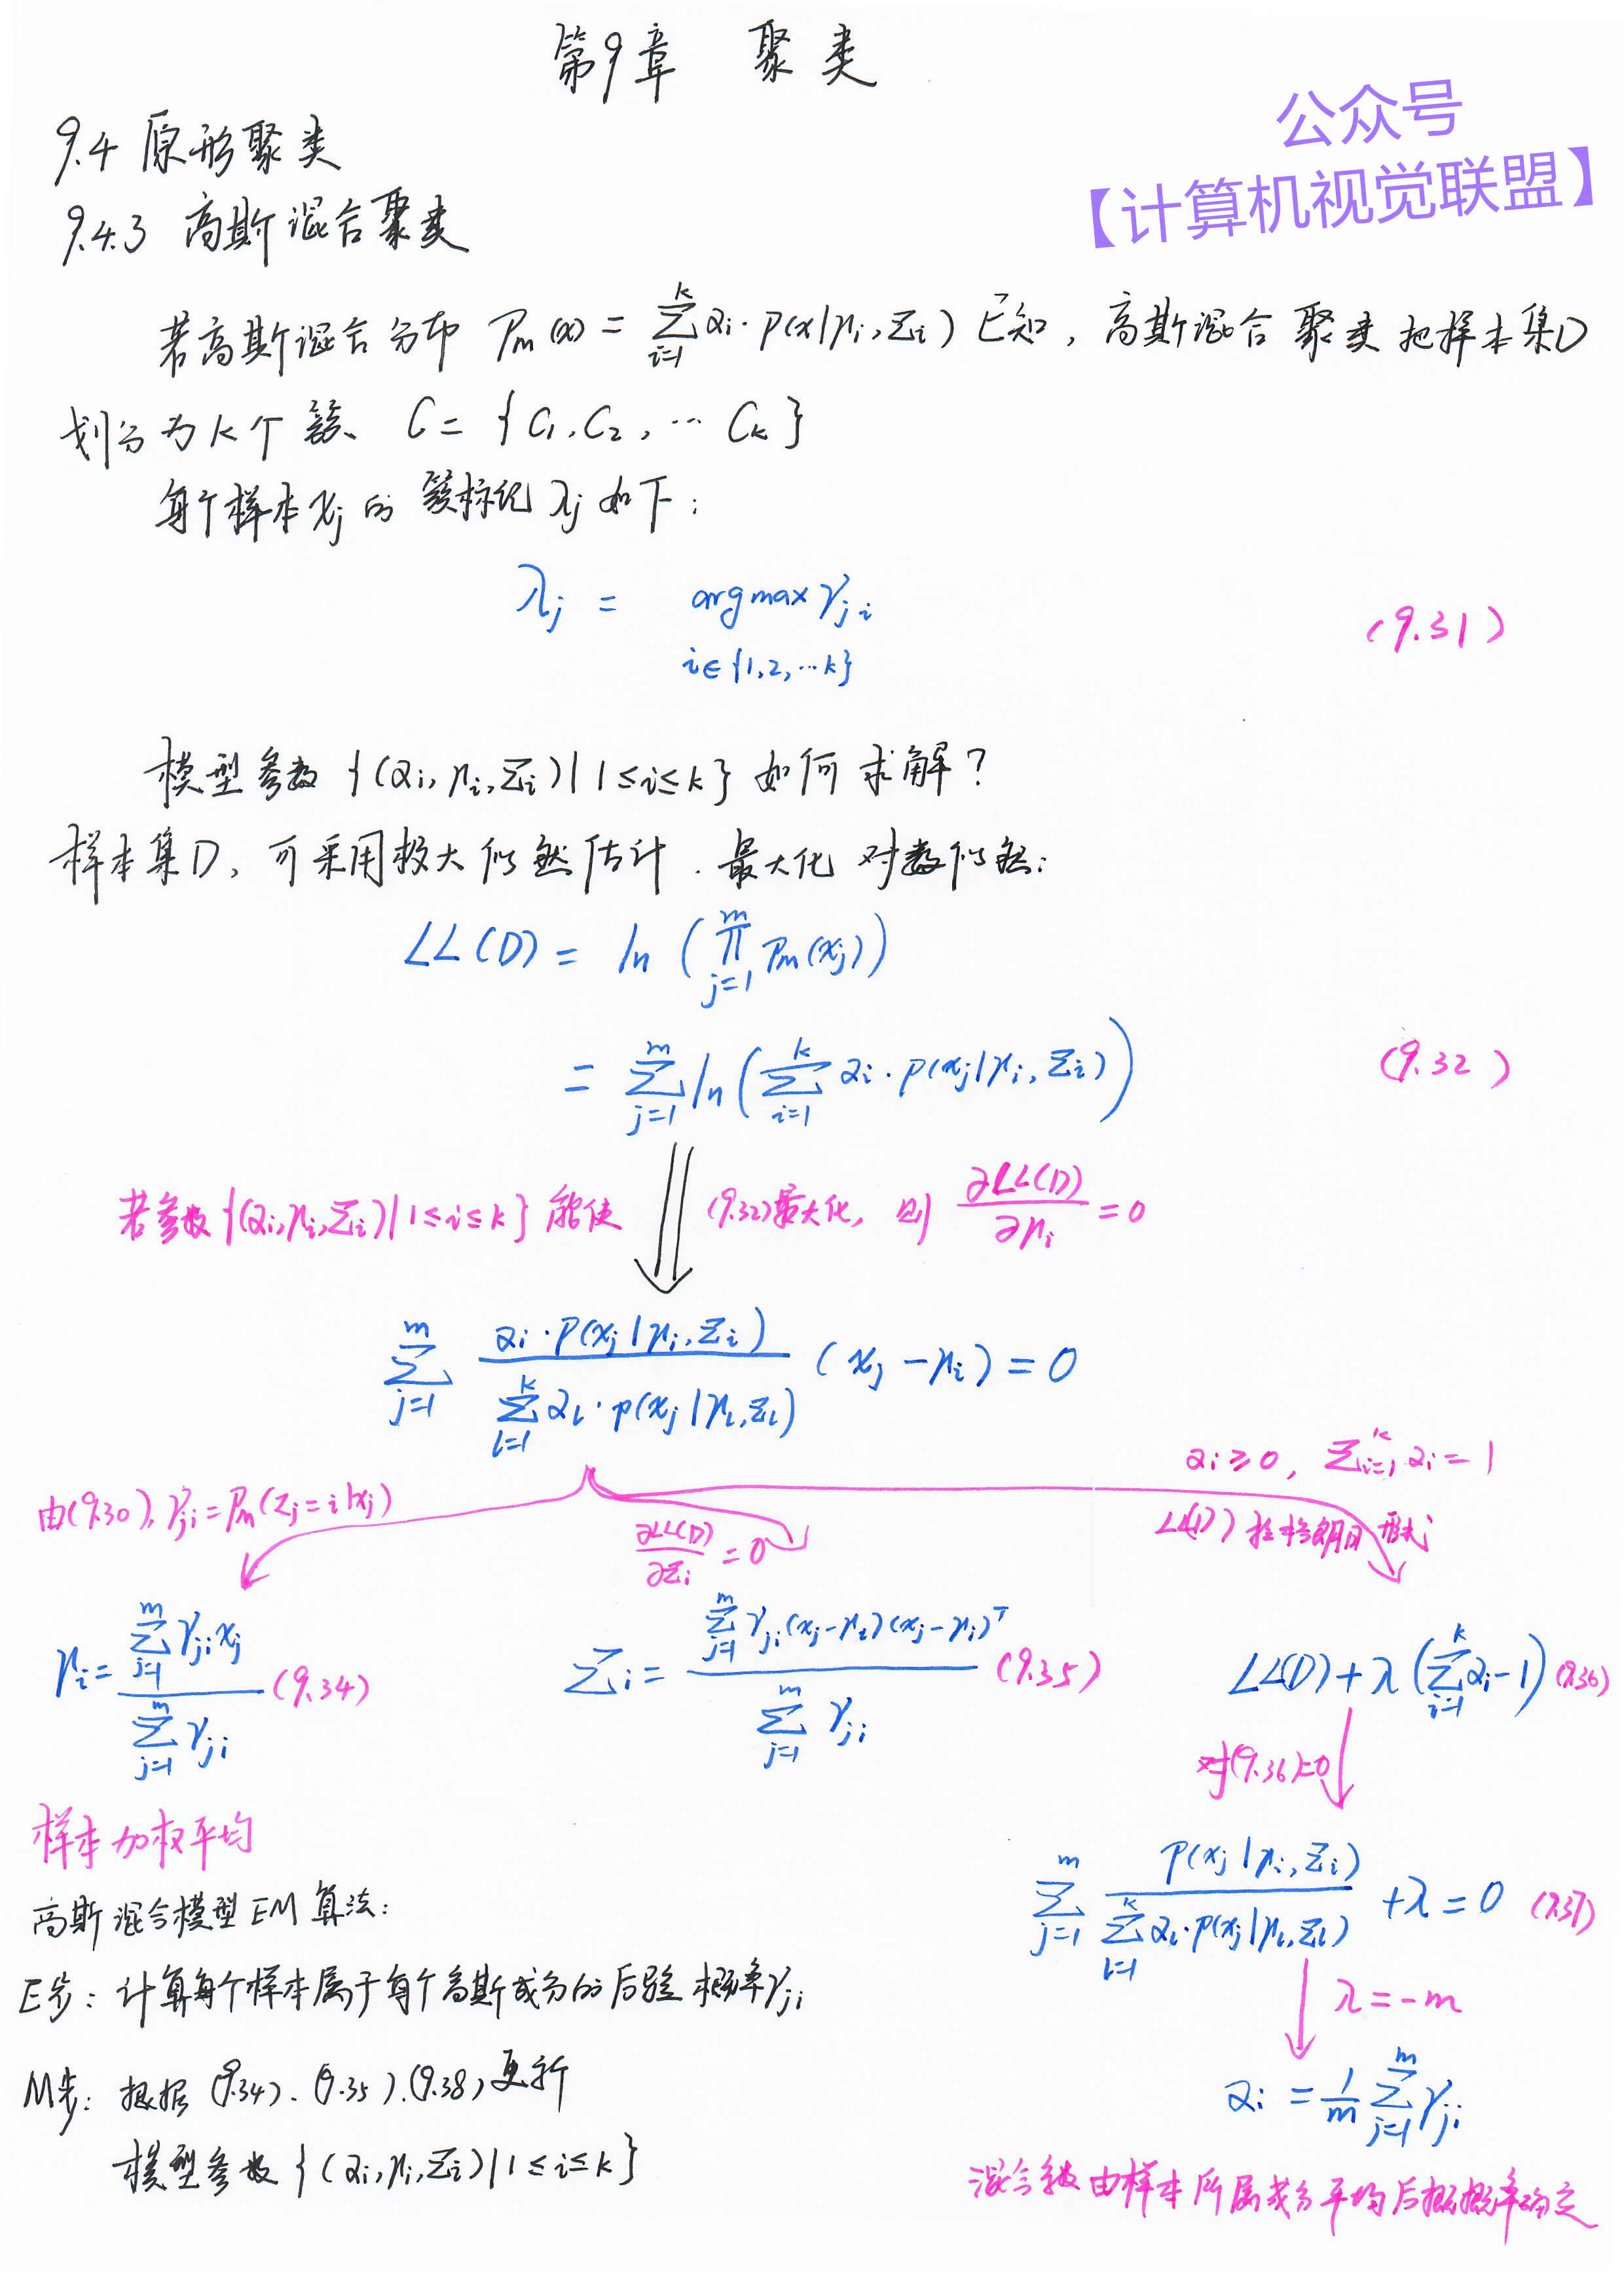 第9章 聚类
公众号
【计算机视觉联盟】
9.4 原形聚类
9.4.3 高斯混合聚类
若高斯混合分布 Pm(x) = Σ_{i=1}^{k} αi·P(x|μi,Σi) 已知,高斯混合聚类把样本集D
划分为k个簇、 C = {C1,C2,…Ck}
每个样本xj的簇标记λj如下:
λj = argmax γji (9.31)
i∈{1,2,…k}
模型参数{(αi,μi,Σi)|1≤i≤k}如何求解?
样本集D,可采用极大似然估计.最大化对数似然:
LL(D) = ln(∏_{j=1}^{m} Pm(xj))
= Σ_{j=1}^{m} ln(Σ_{i=1}^{k} αi·P(xj|μi,Σi)) (9.32)
若参数{(αi,μi,Σi)|1≤i≤k}能使 (9.32)最大化,则 ∂LL(D)/∂μi = 0
Σ_{j=1}^{m} αi·P(xj|μi,Σi) / Σ_{l=1}^{k} αl·P(xj|μl,Σl) (xj-μi) = 0
αi≥0, Σ_{i=1}^{k} αi = 1
由(9.30),γji = Pm(zj=i|xj)
∂LL(D)/∂Σi = 0
LL(D)拉格朗日形式
μi = Σ_{j=1}^{m} γji xj / Σ_{j=1}^{m} γji (9.34)
Σi = Σ_{j=1}^{m} γji(xj-μi)(xj-μi)^T / Σ_{j=1}^{m} γji (9.35)
LL(D)+λ(Σ_{i=1}^{k} αi-1) (9.36)
对(9.36)=0
样本加权平均
Σ_{j=1}^{m} P(xj|μi,Σi) / Σ_{l=1}^{k} αl·P(xj|μl,Σl) +λ=0 (9.37)
λ=-m
αi = 1/m Σ_{j=1}^{m} γji
混合系数由样本所属成分平均后概概率确定
高斯混合模型EM算法:
E步:计算每个样本属于每个高斯成分的后验概率γji
M步:根据(9.34)、(9.35)、(9.38)更新
模型参数{(αi,μi,Σi)|1≤i≤k}